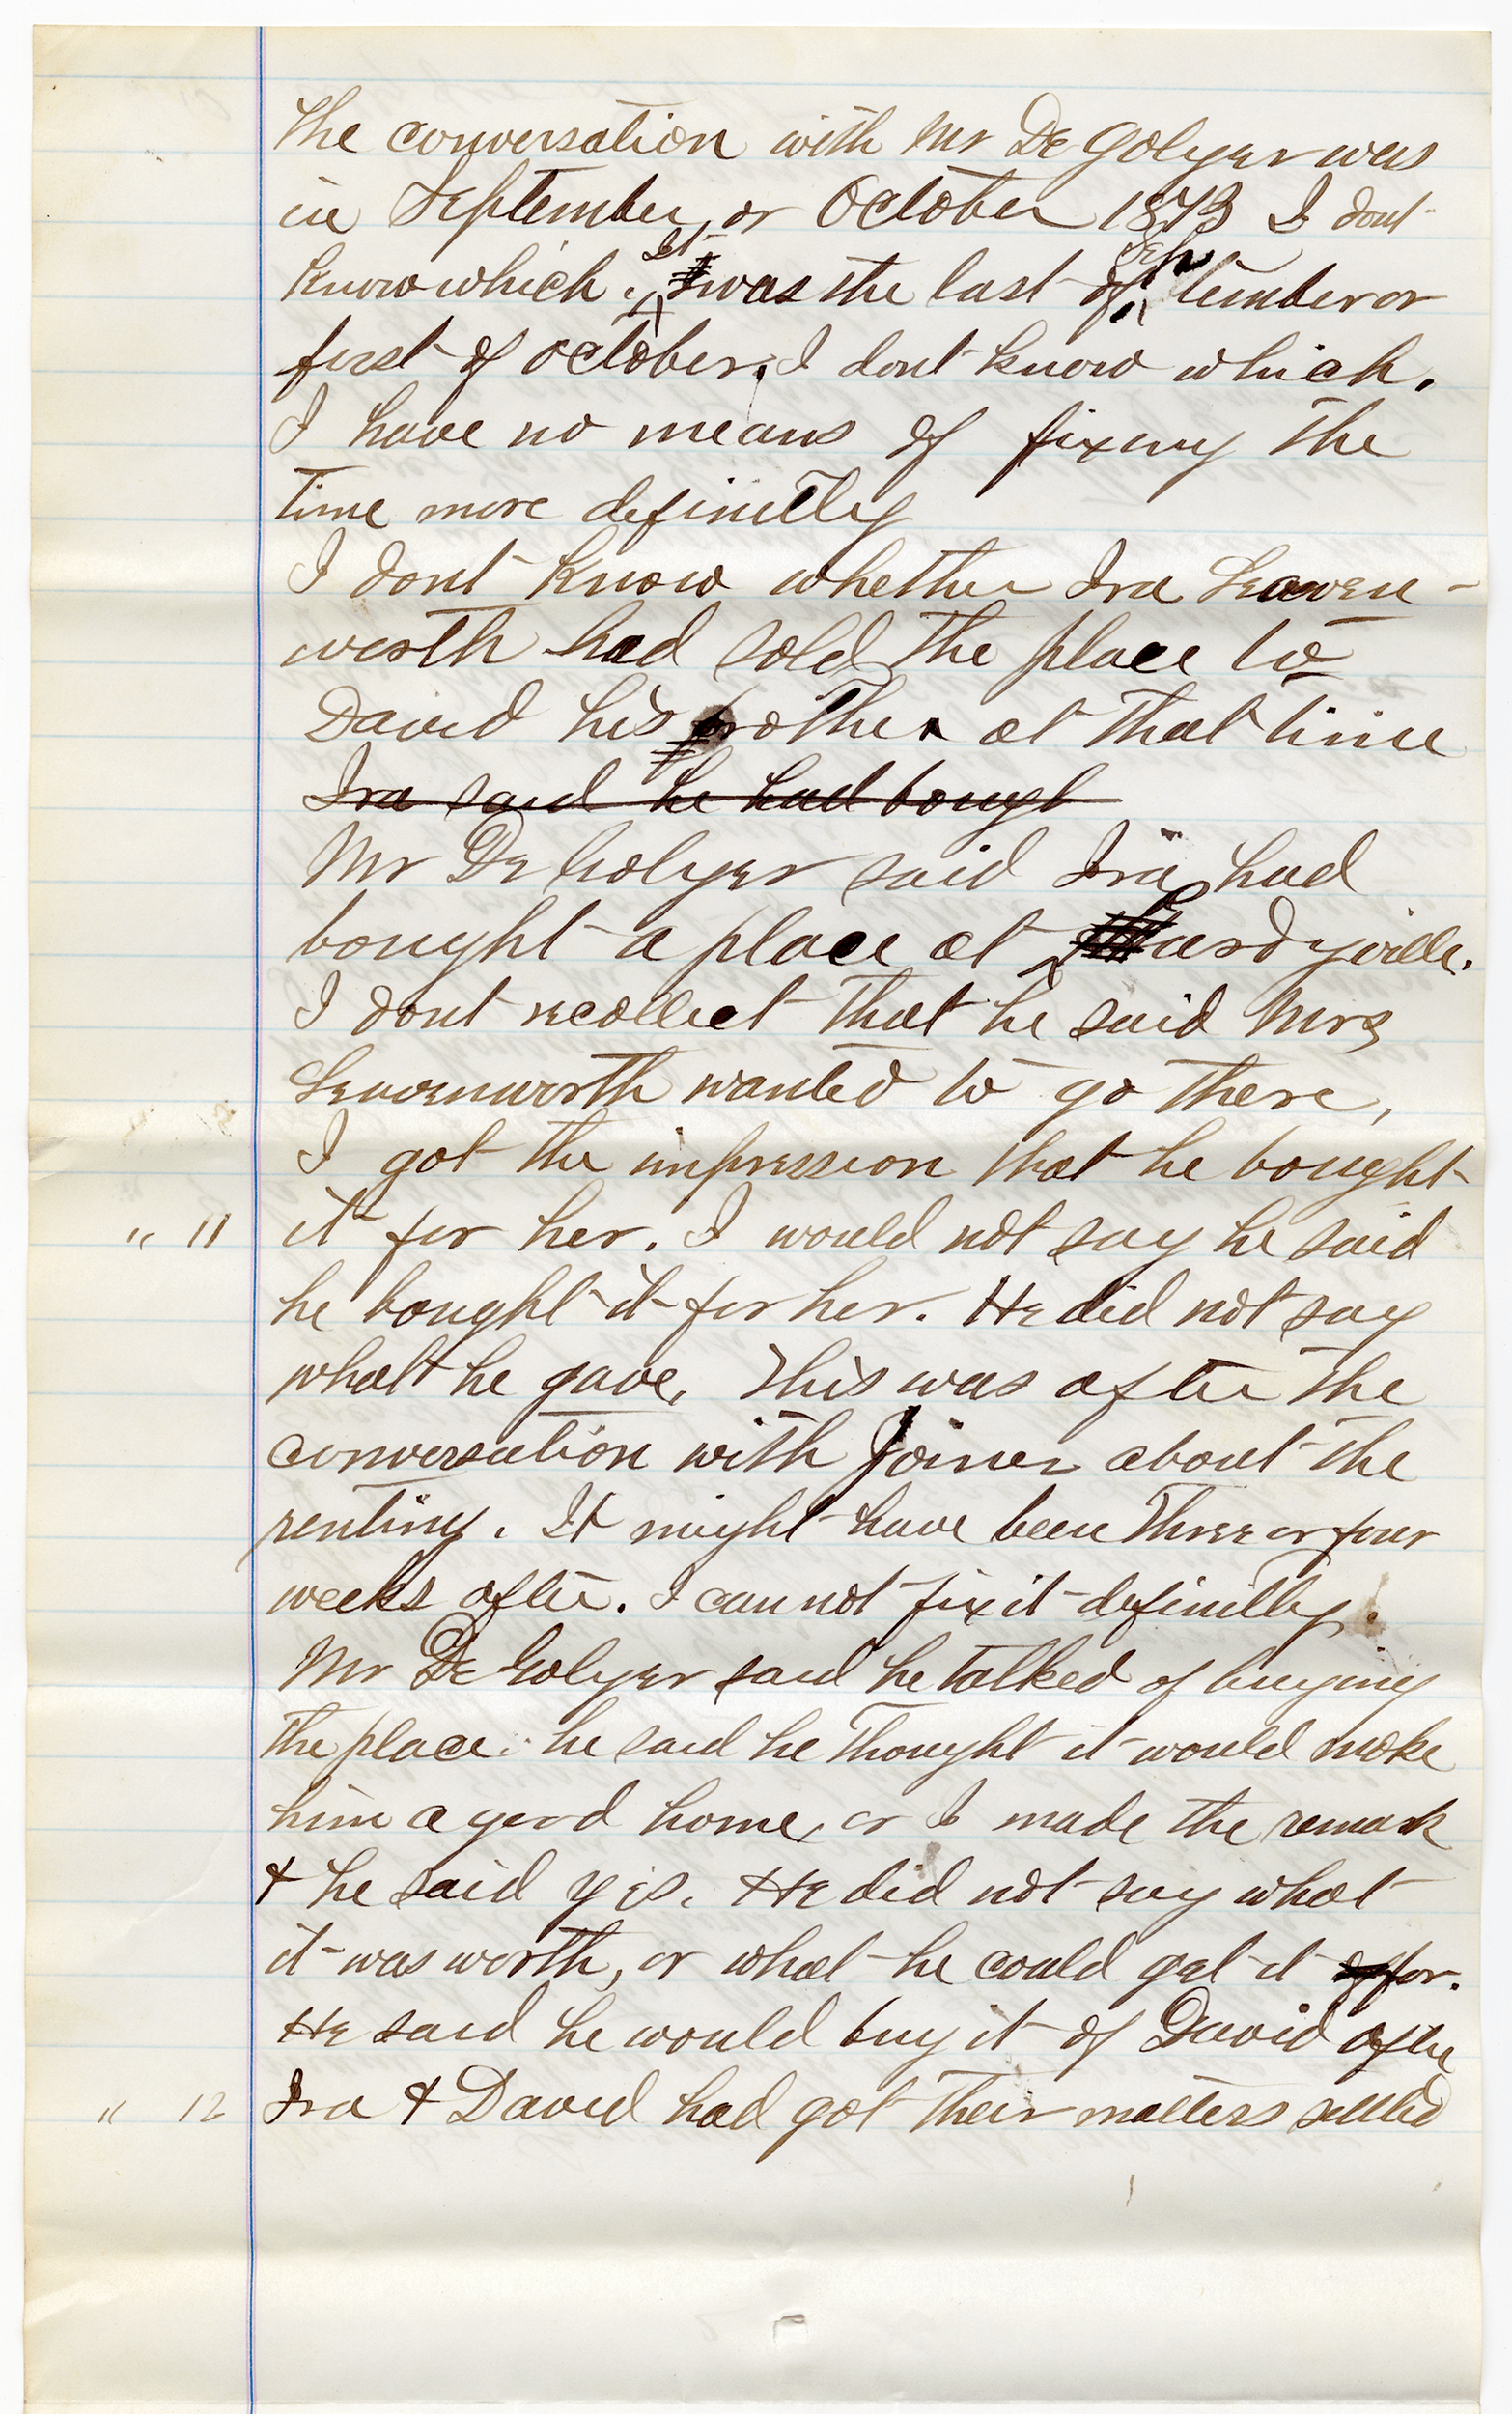 The conversation with Mr De Golyer was
in September, or October 1873 I dont
know which. It was the last of September or
first of October. I dont know which.
I have no means of fixing the
time more definitly
I dont know whether Ira Leaven-
worth had sold the place to
David his brother at that time
Ira said he had bough
Mr De Golyer said Ira had
bought a place at Hardyville.
I dont recollect that he said Mrs
Leavenworth wanted to go there,
I got the impression that he bought
" 11 it for her. I would not say he said
he bought it for her. He did not say
what he gave. This was after the
conversation with Joiner about the
renting. It might have been three or four
weeks after. I cannot fix it definitly.
Mr De Golyer said he talked of buying
the place. he said he thought it would make
him a good home, or I made the remark
& he said yes. He did not say what
it was worth, or what he could get it for.
He said he would buy it of David after
" 12 Ira & David had got their matters settled